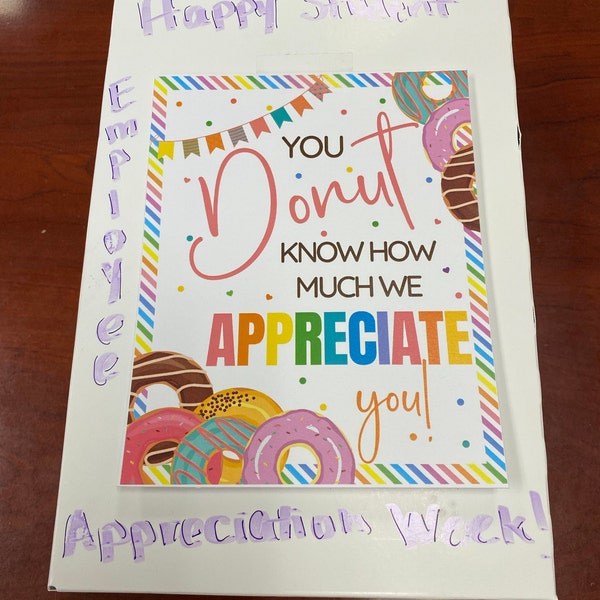 Happy Student
Employee
YOU
Donut
KNOW HOW
MUCH WE
APPRECIATE
you!
Appreciation Week!